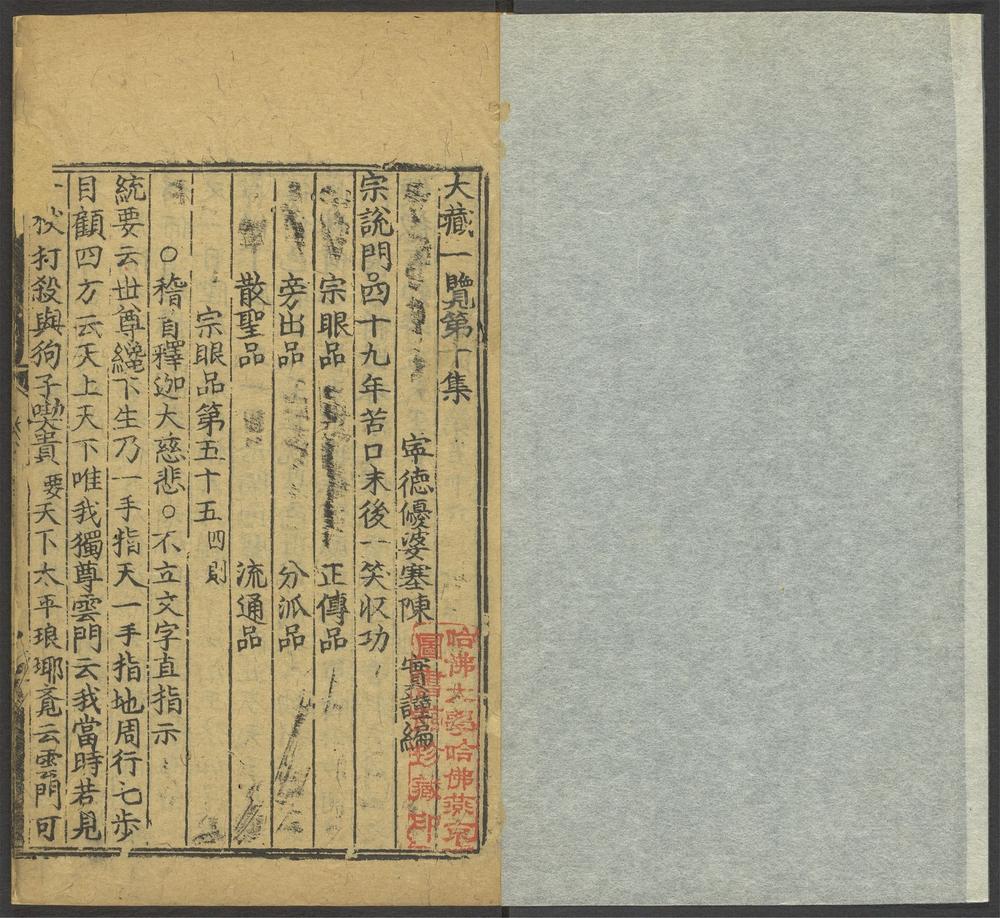 大藏一覽第十集
寧德優婆塞陳　實謹編
宗說門品四十九年苦口末後一笑収功
宗眼品　正傳品
旁出品　分派品
散聖品　流通品
宗眼品第五十五四則
○稽自釋迦大慈悲○不立文字直指示
統要云世尊纔下生乃一手指天一手指地周行七步
目顧四方云天上天下唯我獨尊雲門云我當時若見
一杖打殺與狗子喫貴要天下太平琅瑘覺云雲門可
哈佛大學哈佛燕京
圖書館珍藏印